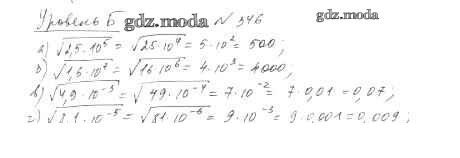 Уровень Б gdz.moda № 346 gdz.moda
а) √2,5·10⁵ = √25·10⁴ = 5·10² = 500;
б) √1,6·10⁷ = √16·10⁶ = 4·10³ = 4000;
в) √4,9·10⁻³ = √49·10⁻⁴ = 7·10⁻² = 7·0,01 = 0,07;
г) √8,1·10⁻⁵ = √81·10⁻⁶ = 9·10⁻³ = 9·0,001 = 0,009;